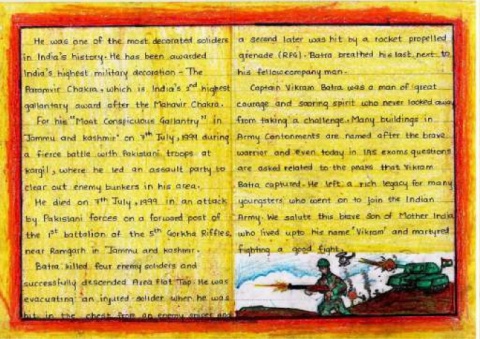 He was one of the most decorated soliders
in India's history. He has been awarded
India's highest military decoration - The
Paramvir Chakra, which is India's 2nd highest
gallantary award after the Mahavir Chakra.
For his "Most Conspicuous Gallantry" in
Jammu and kashmir on 7th July, 1999 during
a fierce battle with Pakistani troops at
Kargil, where he led an assault party to
clear out enemy bunkers in his area.
He died on 7th July, 1999 in an attack
by Pakistani forces on a forward post of
the 1st battalion of the 5th Gorkha Riffles,
near Ramgarh in Jammu and kashmir.
Batra killed four enemy soliders and
successfully descended Area flat Top. He was
evacuating an injured solider when he was
hit in the chest from an enemy sniper and
a second later was hit by a rocket propelled
grenade (RPG). Batra breathed his last next to
his fellow company man.
Captain Vikram Batra was a man of great
courage and soaring spirit who never looked away
from taking a challenge. Many buildings in
Army Cantonments are named after the brave
warrior and Even today in IAS exams questions
are asked related to the peaks that Vikram
Batra captured. He left a rich legacy for many
youngsters who went on to join the Indian
Army. We salute this brave son of Mother India
who lived upto his name 'Vikram' and martyred
fighting a good fight.